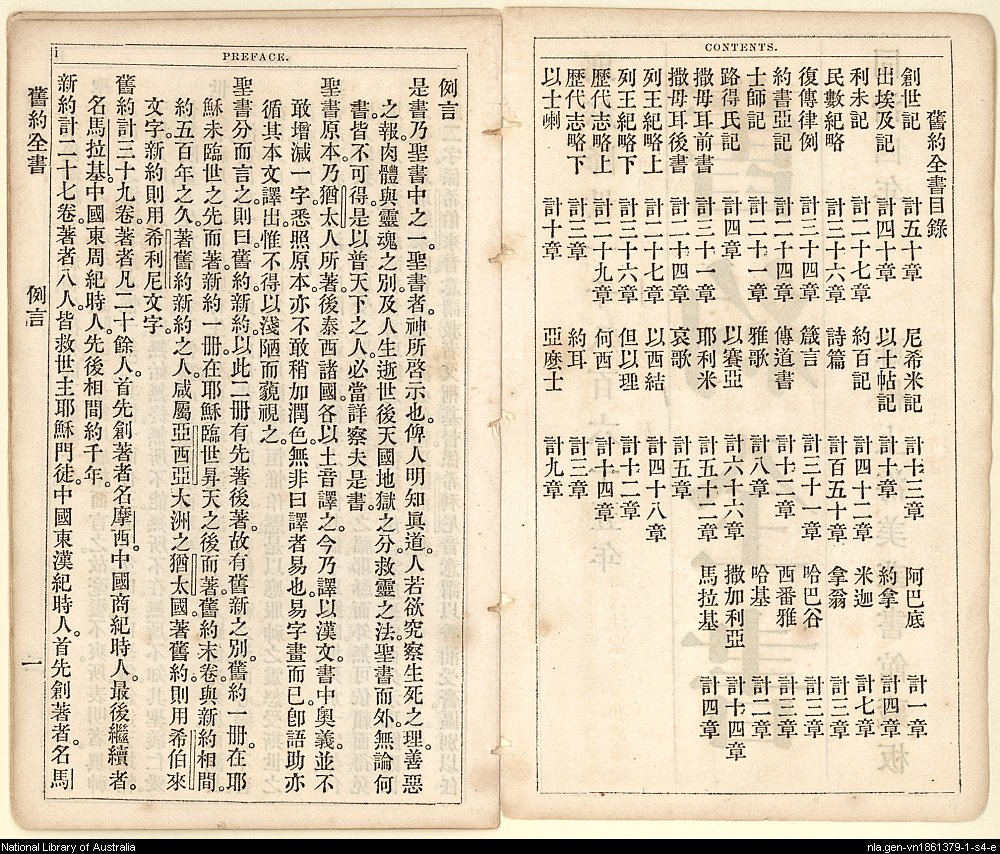 CONTENTS.
舊約全書目錄
創世記 計五十章
出埃及記 計四十章
利未記 計二十七章
民數紀略 計三十六章
復傳律例 計三十四章
約書亞記 計二十四章
士師記 計二十一章
路得氏記 計四章
撒母耳前書 計三十一章
撒母耳後書 計二十四章
列王紀略上 計二十七章
列王紀略下 計三十六章
歷代志略上 計二十九章
歷代志略下 計三章
以士喇 計十章
尼希米記 計十三章
以士帖記 計十章
約百記 計四十二章
詩篇 計百五十章
箴言 計三十一章
傳道書 計十二章
雅歌 計八章
以賽亞 計六十六章
耶利米 計五十二章
哀歌 計五章
以西結 計四十八章
但以理 計十二章
何西 計十四章
約耳 計三章
亞麽士 計九章
阿巴底 計一章
約拿 計四章
米迦 計七章
拿翁 計三章
哈巴谷 計三章
西番雅 計三章
哈基 計二章
撒加利亞 計十四章
馬拉基 計四章
i
PREFACE.
例言
是書乃聖書中之一。聖書者。神所啓示也。俾人明知眞道。人若欲究察生死之理。善惡
之報。肉體與靈魂之別。及人生逝世後天國地獄之分。救靈之法。聖書而外。無論何
書。皆不可得。是以普天下之人。必當詳察夫是書。
聖書原本。乃猶太人所著。後泰西諸國。各以土音譯之。今乃譯以漢文。書中奧義。並不
敢增減一字。悉照原本。亦不敢稍加潤色。無非曰譯者易也。易字畫而已。卽語助亦
循其本文譯出。惟不得以淺陋而藐視之。
聖書分而言之。則曰。舊約新約。以此二冊有先著後著。故有舊新之別。舊約一冊。在耶
穌未臨世之先而著。新約一冊。在耶穌臨世昇天之後而著。舊約末卷。與新約相間。
約五百年之久。著舊約新約之人。咸屬亞西亞大洲之猶太國。著舊約。則用希伯來
文字。新約則用希利尼文字。
舊約計三十九卷。著者凡二十餘人。首先創著者名摩西。中國商紀時人。最後繼續者。
名馬拉基。中國東周紀時人。先後相間約千年。
新約計二十七卷。著者八人。皆救世主耶穌門徒。中國東漢紀時人。首先創著者。名馬
舊約全書 例言 一
National Library of Australia
nla.gen-vn1861379-1-s4-e